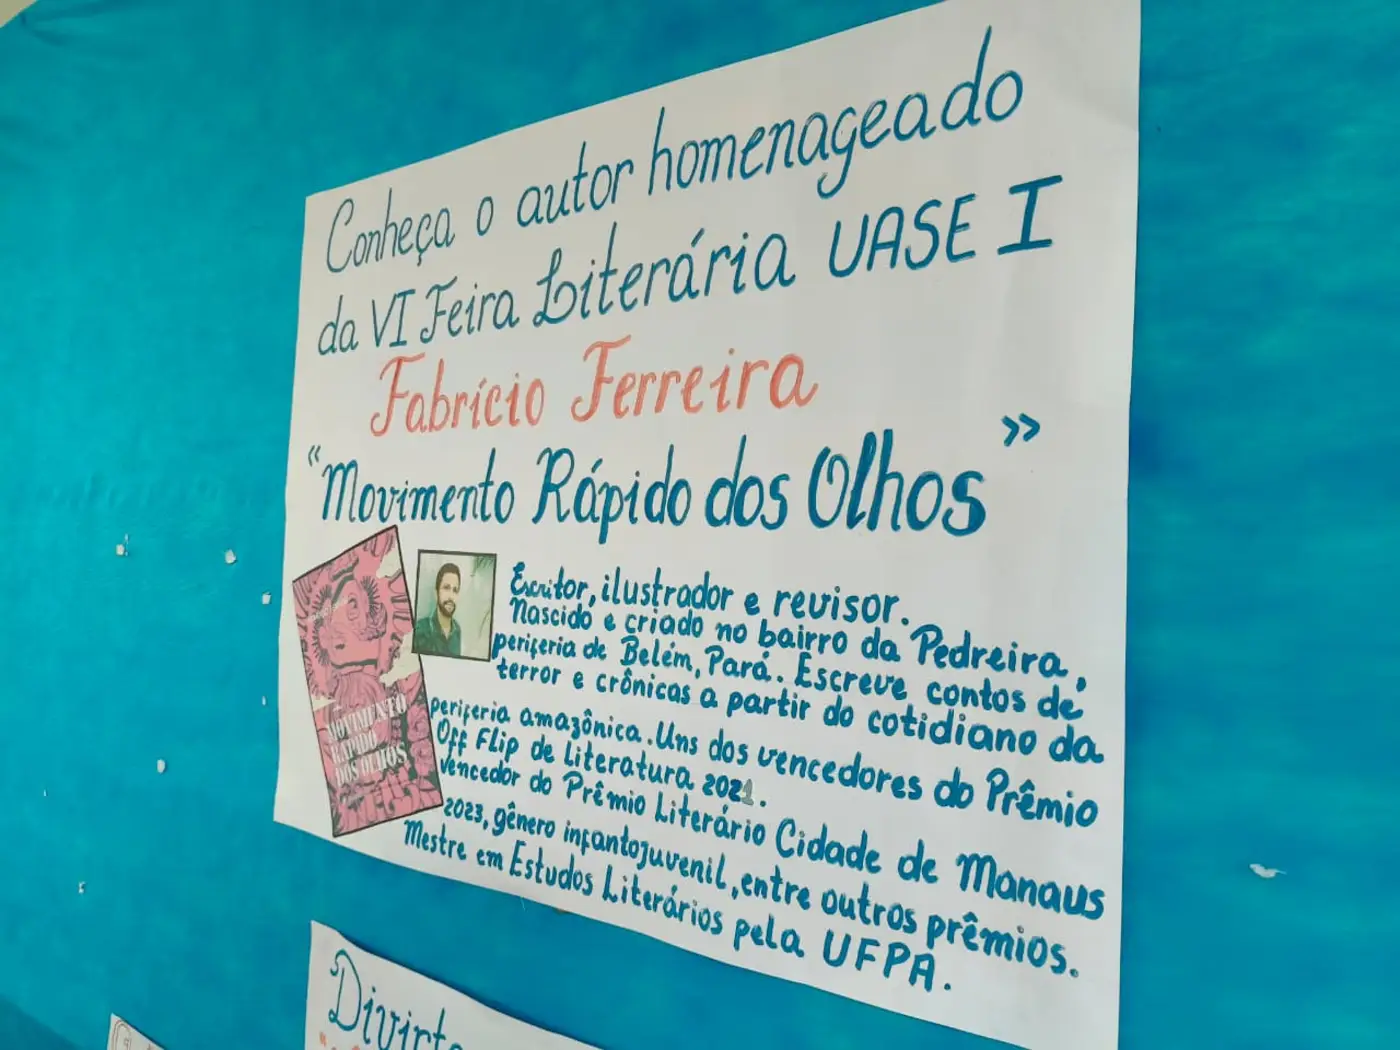 Conheça o autor homenageado
da VI Feira Literária UASE I
Fabrício Ferreira
"Movimento Rápido dos Olhos"
MOVIMENTO
RÁPIDO
DOS OLHOS
Escritor, ilustrador e revisor.
Nascido e criado no bairro da Pedreira,
periferia de Belém, Pará. Escreve contos de
terror e crônicas a partir do cotidiano da
periferia amazônica. Uns dos vencedores do Prêmio
Off Flip de Literatura 2021.
Vencedor do Prêmio Literário Cidade de Manaus
2023, gênero infantojuvenil, entre outros prêmios.
Mestre em Estudos Literários pela UFPA.